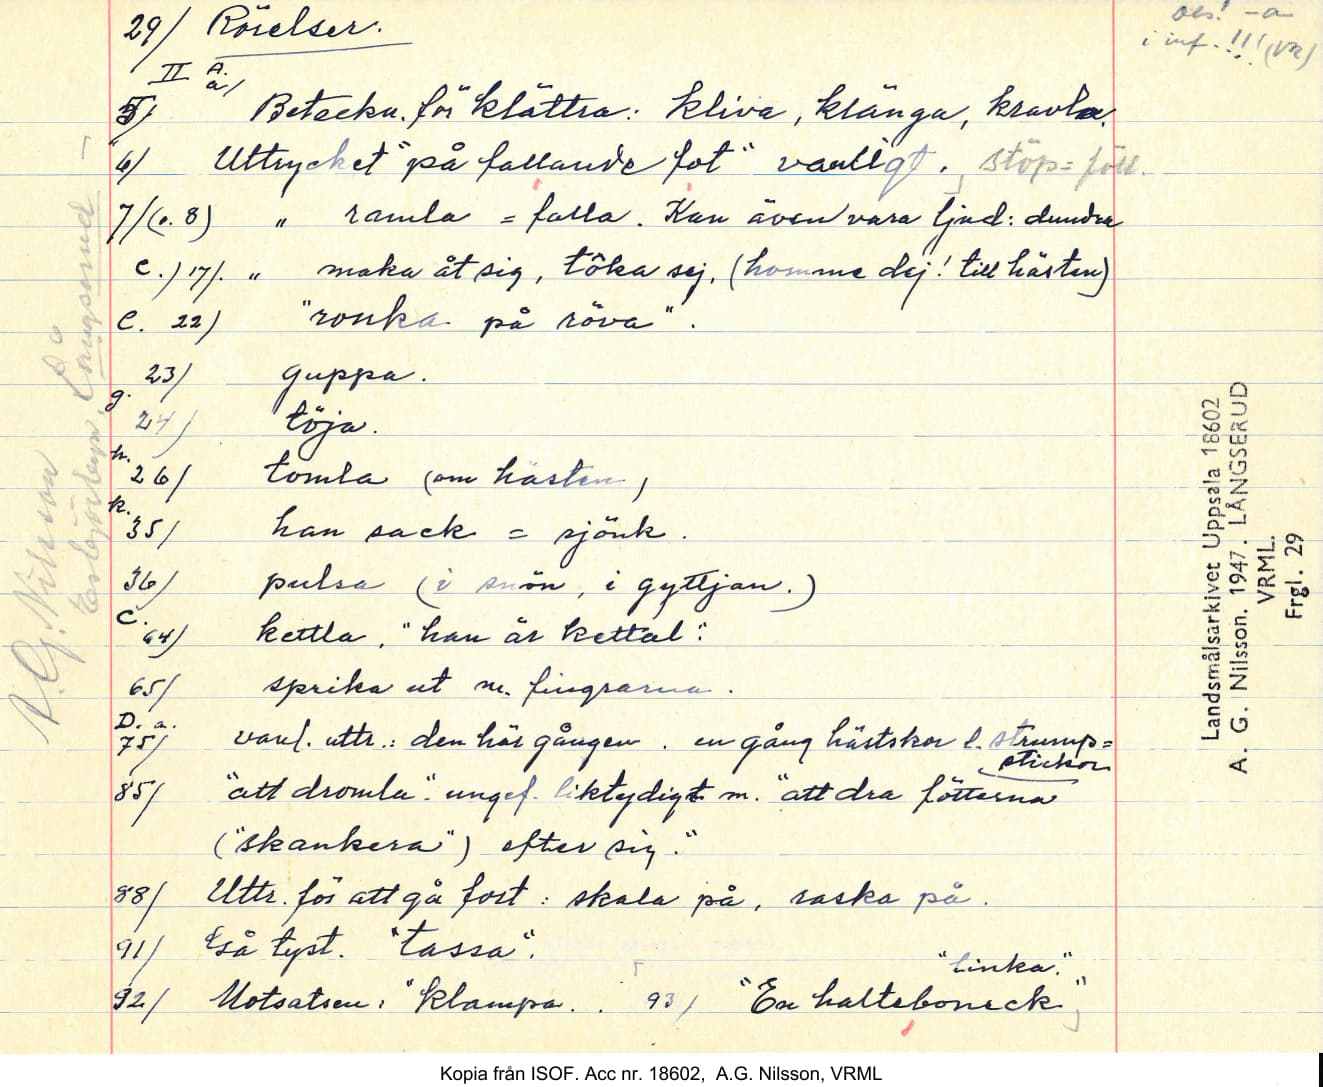 29/ Rörelser.
obs! -a
i inf. !!! (VR)
II A.
a/
5/ Beteckn. för klättra: kliva, klänga, kravla.
6/ Uttrycket "på fallande fot" vanligt. stöp=föll.
7/(o. 8) " ramla = falla. Kan även vara ljud: dundra
C.) 17/. " maka åt sig, tôka sej, (homme dej! till hästen)
C. 22) "ronka på röva".
23/ guppa.
g.
24) töja.
h.
26/ tomla (om hästen)
k.
35/ han sack = sjönk.
36/ pulsa (i snön, i gyttjan.)
C.
64) kettla, "han är kettal":
65/ sprika ut m. fingrarna.
D. a.
75/ vanl. uttr.: den här gången. en gång hästskor l. strump=
stickor
85/ "att dromla". ungef. liktydigt m. "att dra fötterna
("skankera") efter sig."
88/ Uttr. för att gå fort: skala på, raska på.
91/ Gå tyst. "tassa".
"linka".
92/ Motsatsen: "klampa.. 93/ "En halteboneck"
A. G. Nilsson
Långserud
Landsmålsarkivet Uppsala 18602
A. G. Nilsson. 1947. LÅNGSERUD
VRML.
Frgl. 29
Kopia från ISOF. Acc nr. 18602, A.G. Nilsson, VRML